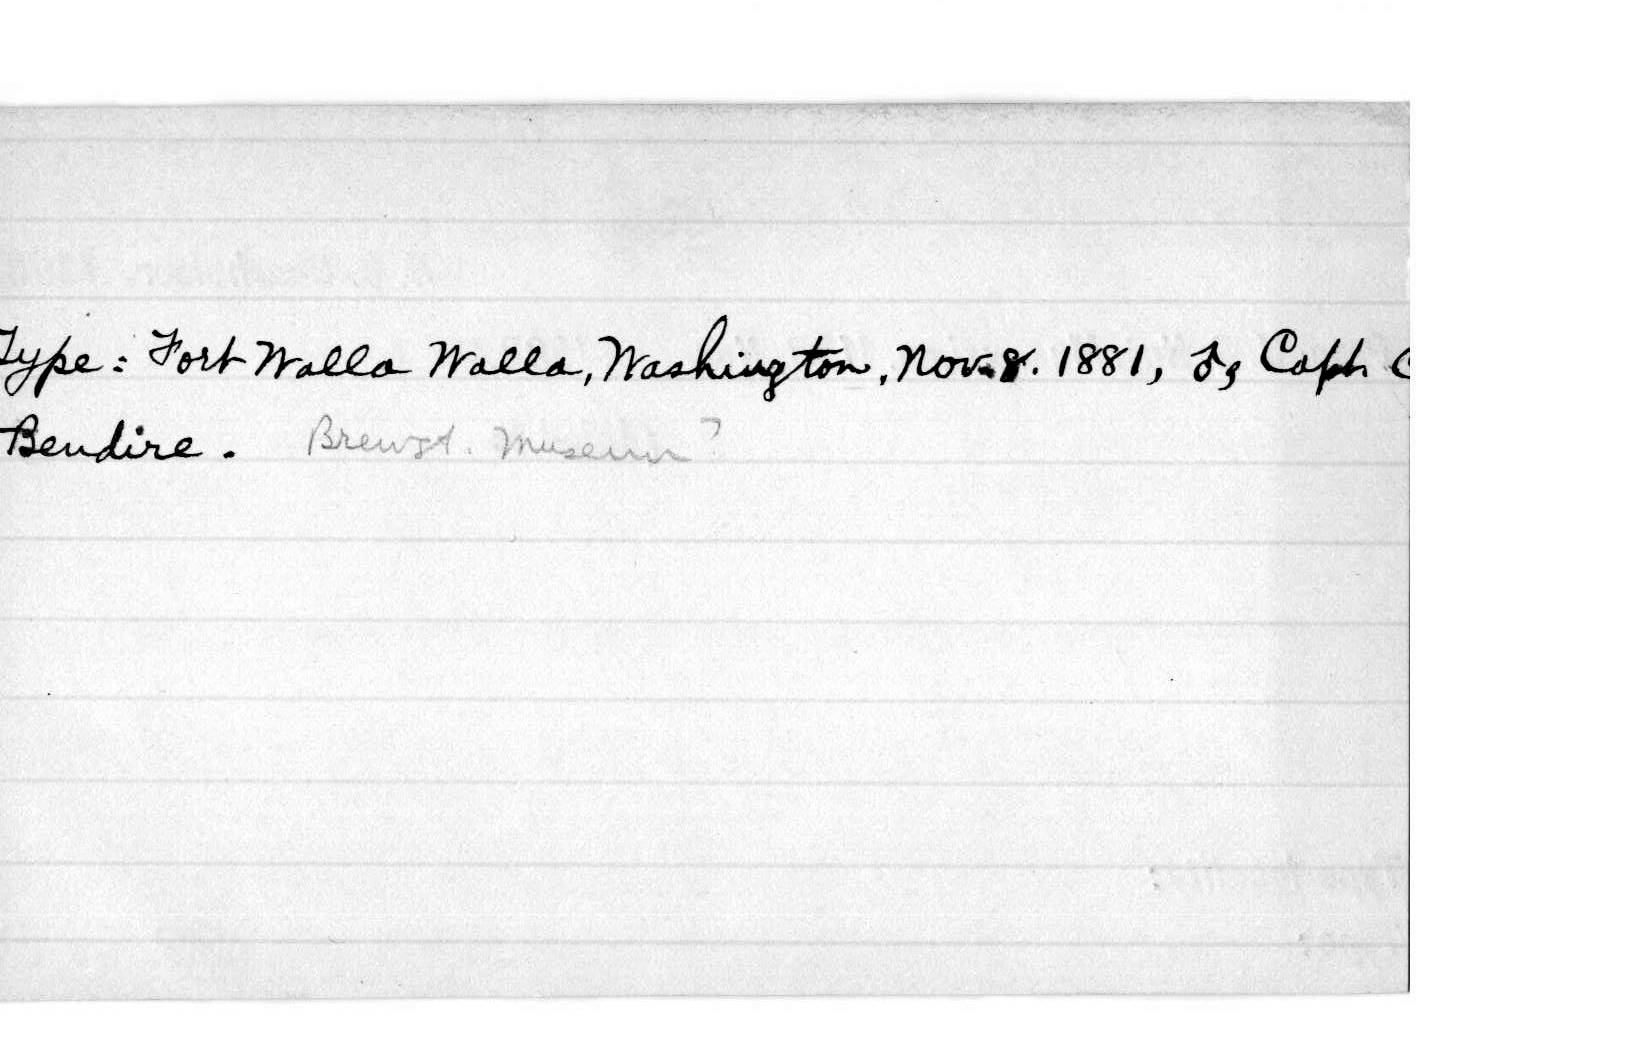 Type: Fort Walla Walla, Washington, Nov. 8. 1881, ♂, Capt. C
Bendire. Brewst. Museum?